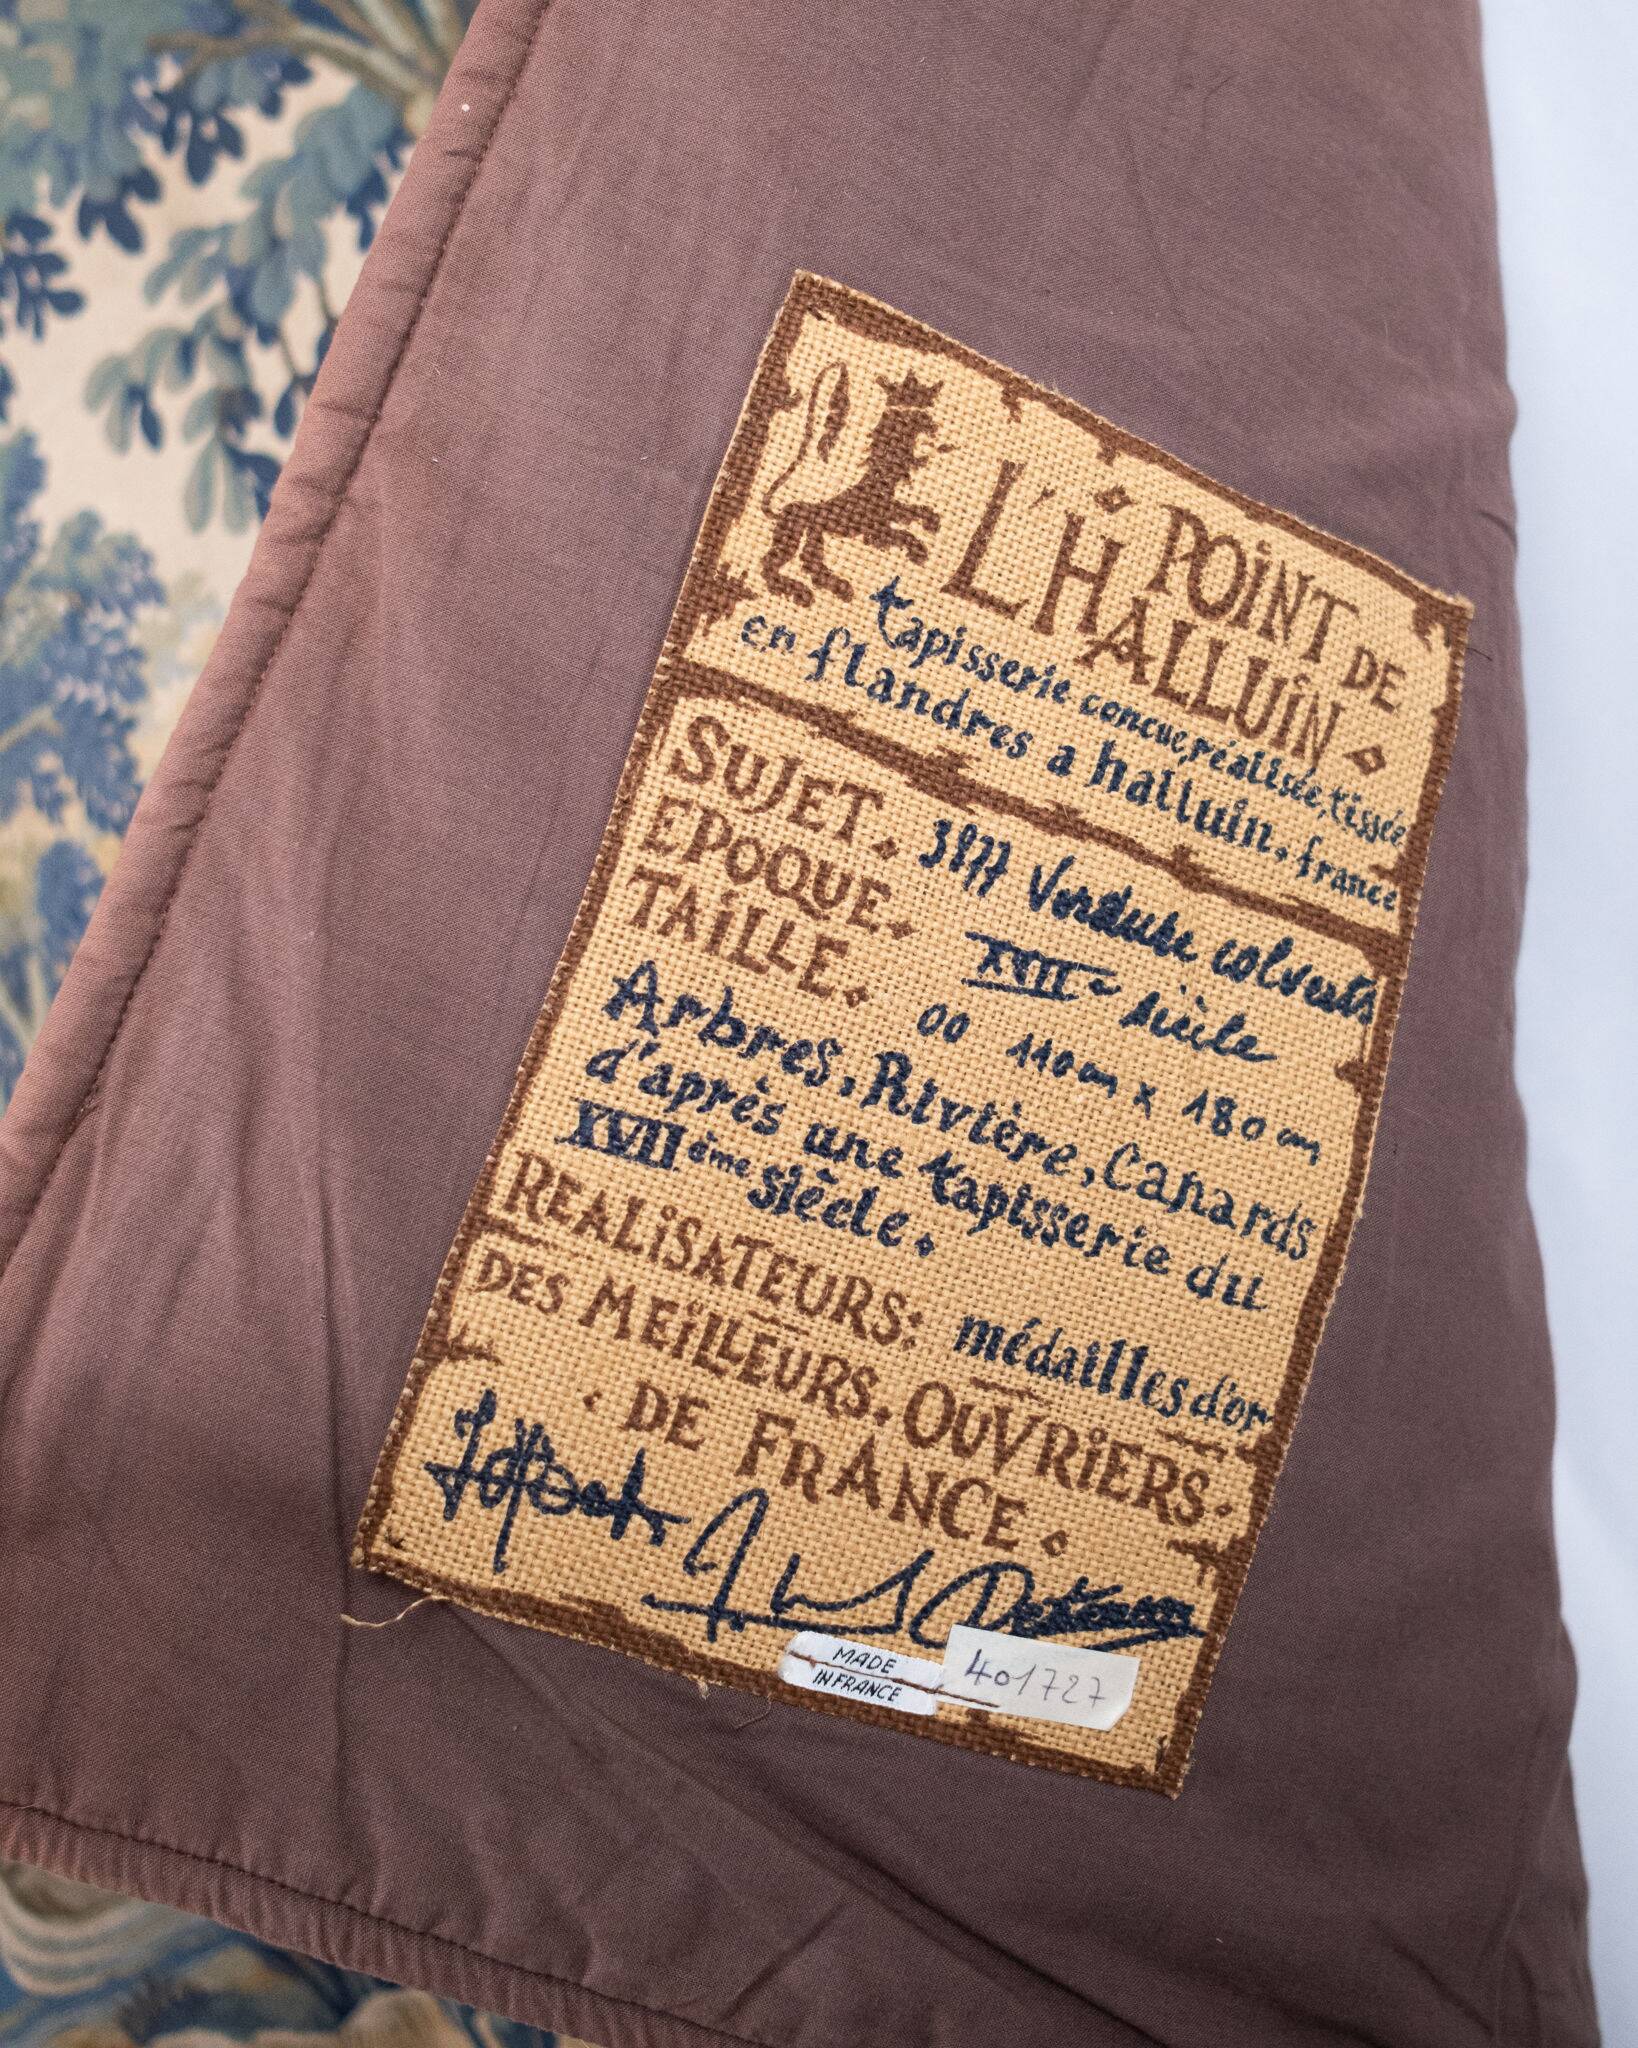 POINT DE
L'HALLUIN
tapisserie concue, réalisée, tissée
en flandres a halluin. france
SUJET. 3877 Verdure colverts
EPOQUE. XVII e siècle
TAILLE. 00 110 cm x 180 cm
Arbres, Rivière, Canards
d'après une tapisserie du
XVII ème siècle.
REALISATEURS: médailles d'or
DES MEILLEURS. OUVRIERS.
DE FRANCE
MADE
IN FRANCE
401727